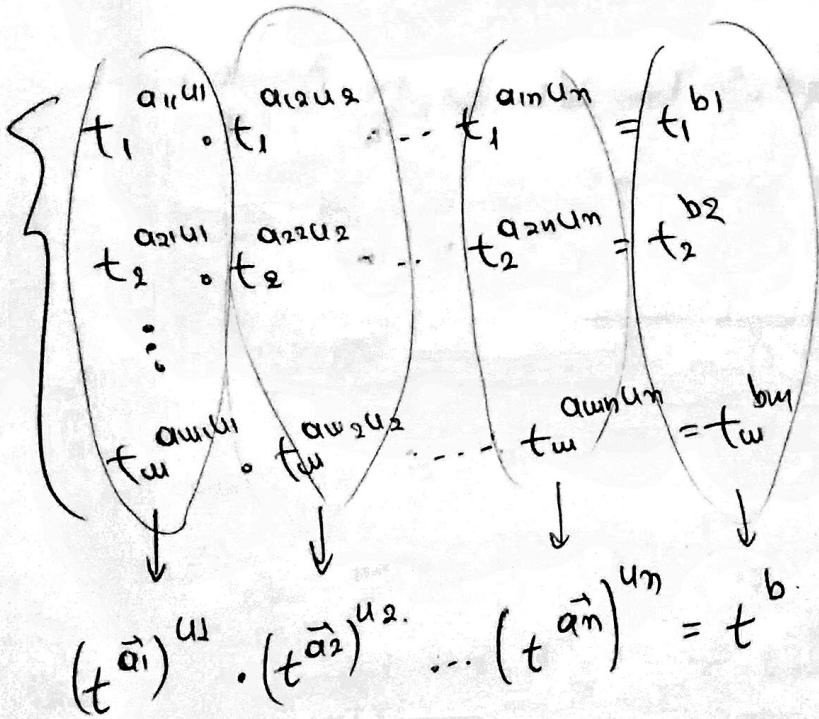 t₁^{a₁₁u₁} · t₁^{a₁₂u₂} ... t₁^{a₁ₙuₙ} = t₁^{b₁}
t₂^{a₂₁u₁} · t₂^{a₂₂u₂} ... t₂^{a₂ₙuₙ} = t₂^{b₂}
⋮
tₘ^{aₘ₁u₁} · tₘ^{aₘ₂u₂} ... tₘ^{aₘₙuₙ} = tₘ^{bₘ}
↓ ↓ ↓ ↓
(t^{\vec{a₁}})^{u₁} · (t^{\vec{a₂}})^{u₂} ... (t^{\vec{aₙ}})^{uₙ} = t^{b}